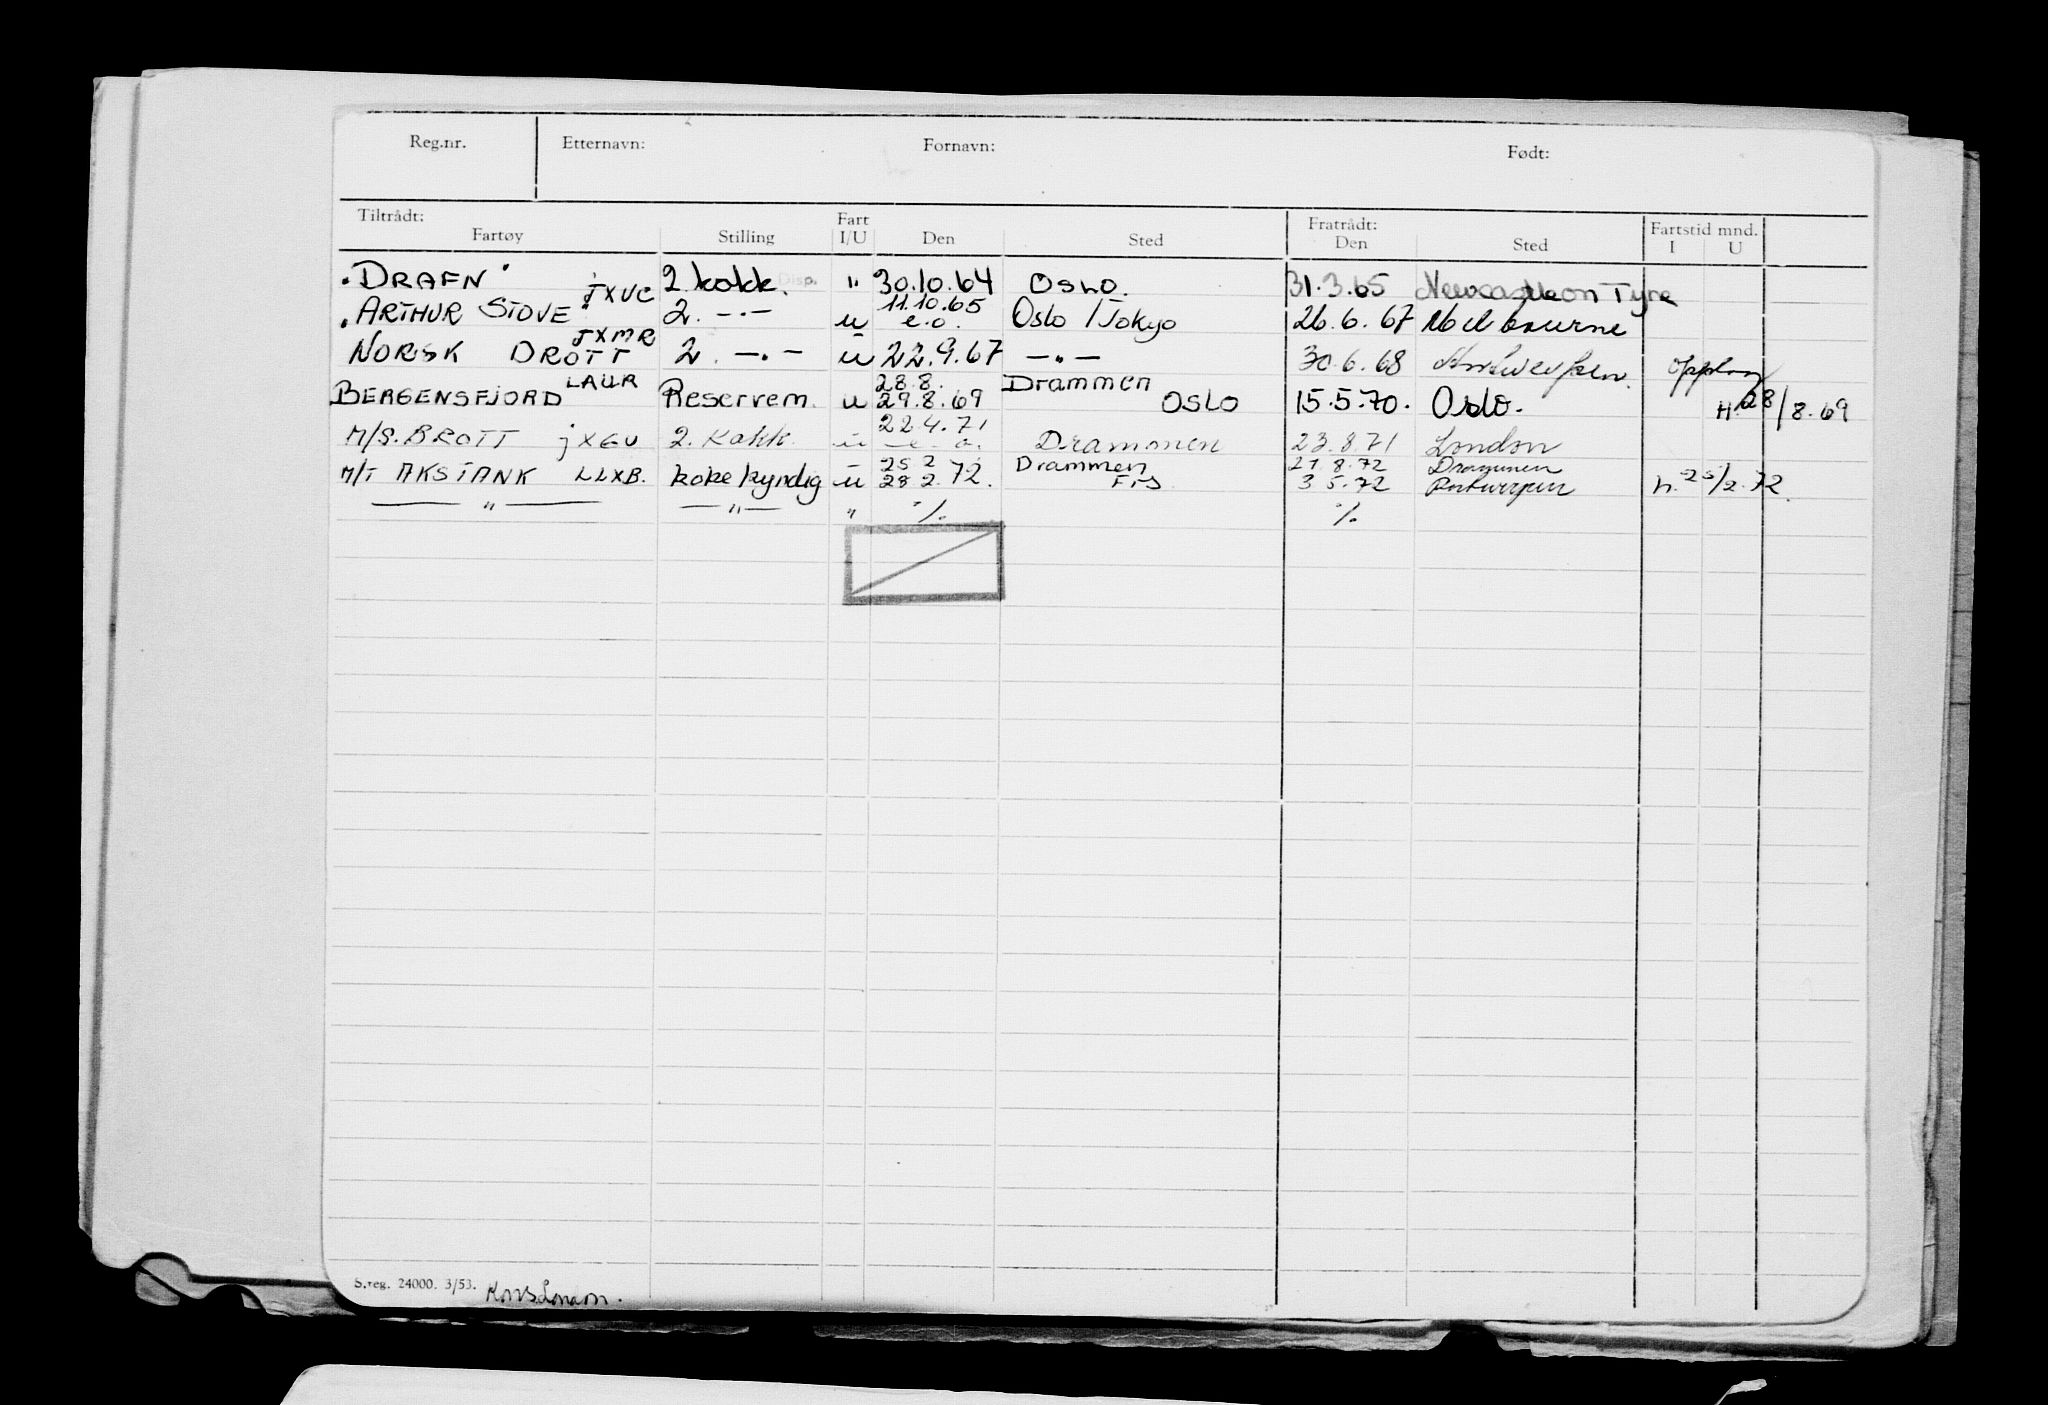 Reg.nr. Etternavn: Fornavn: Født:
Tiltrådt: Fratrådt:
Fartøy Stilling Fart I/U Den Sted Den Sted Fartstid mnd. I U
"DRAFN" 2. kokk. Disp. " 30.10.64 OSLO. 31.3.65 Newcastleon Tyne
"ARTHUR STOVE" JXUC 2. -"- u 11.10.65 e.o. Oslo / Tokyo 26.6.67 Melbourne
NORSK DROTT JXMR 2. -"- u 22.9.67 -"- 30.6.68 Antwerpen. opplag
BERGENSFJORD LAUR Reservem. u 28.8. 29.8.69 Drammen OSLO 15.5.70. Oslo. H. 28/8.69
M/S. BROTT jXGU 2. Kokk. u 22.4.71 -e-o. Drammen 23.8.71 London
M/T AKSTANK LLXB. kokekyndig u 25 2 28 2. 72. Drammen Frs 21.8.72 3 5.72 Drammen Antwerpen h. 25/2.72.
—"— —"— " ·/. ·/.
S.reg. 24000. 3/53. Kons. London.